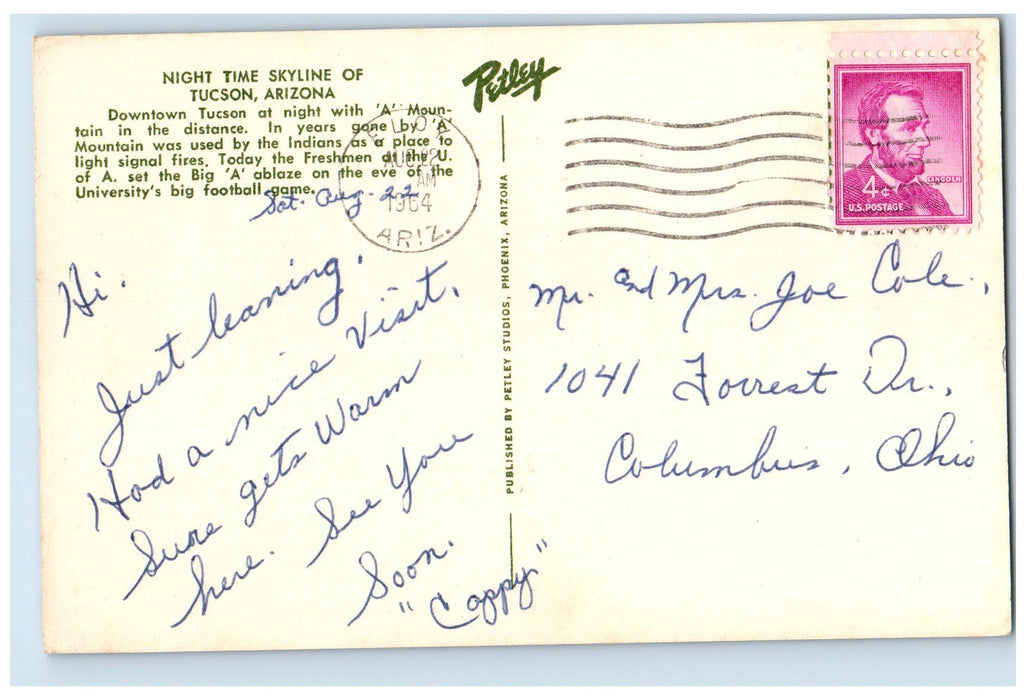 NIGHT TIME SKYLINE OF
TUCSON, ARIZONA
Downtown Tucson at night with 'A' Moun-
tain in the distance. In years gone by 'A'
Mountain was used by the Indians as a place to
light signal fires. Today the Freshmen at the U.
of A. set the Big 'A' ablaze on the eve of the
University's big football game.
Sat. Aug. 22
Hi.
Just leaving.
Had a nice visit.
Sure gets Warm
here. See You
Soon.
"Cappy"
Petley
PUBLISHED BY PETLEY STUDIOS, PHOENIX, ARIZONA
ELOY
AUG 22
AM
1964
ARIZ.
4¢
LINCOLN
U.S. POSTAGE
Mr. and Mrs. Joe Cole.,
1041 Forrest Dr.,
Columbus, Ohio